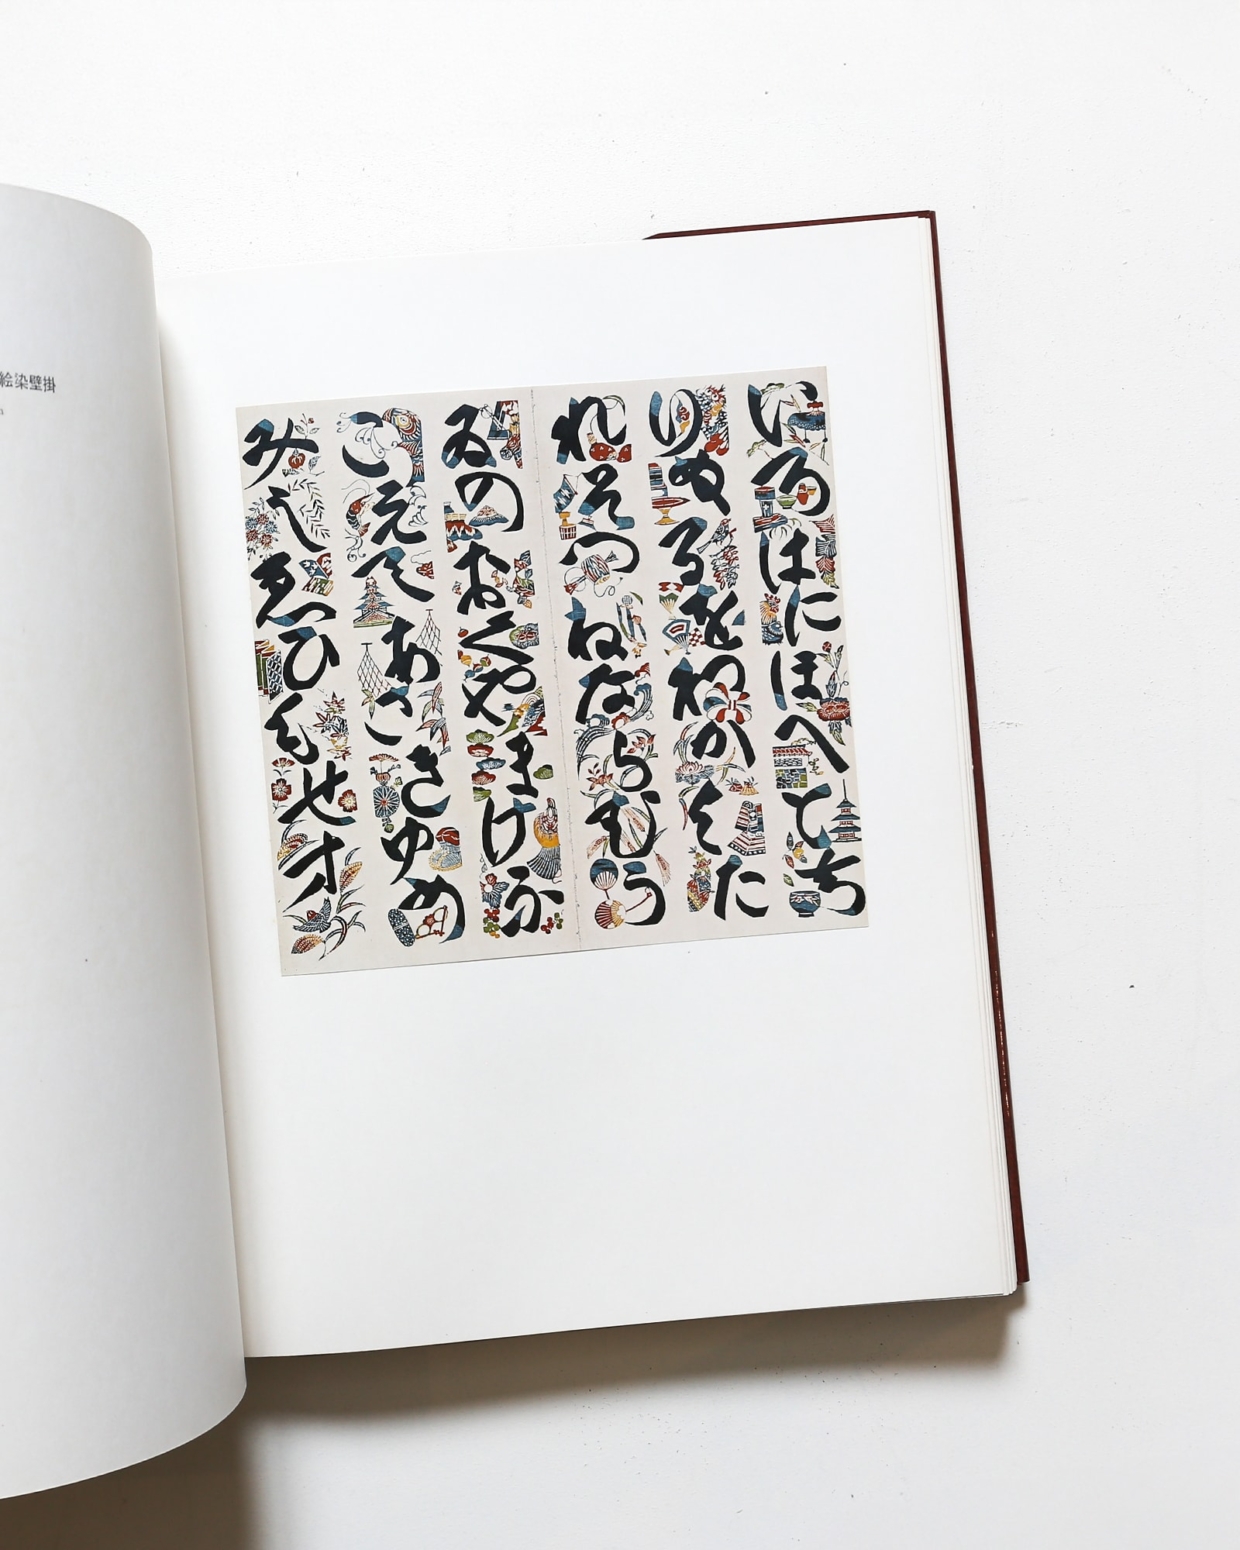 絵染壁掛
いろはにほへとち
りぬるをわかよた
れそつねならむう
ゐのおくやまけふ
こえてあさきゆめ
みしゑひもせす